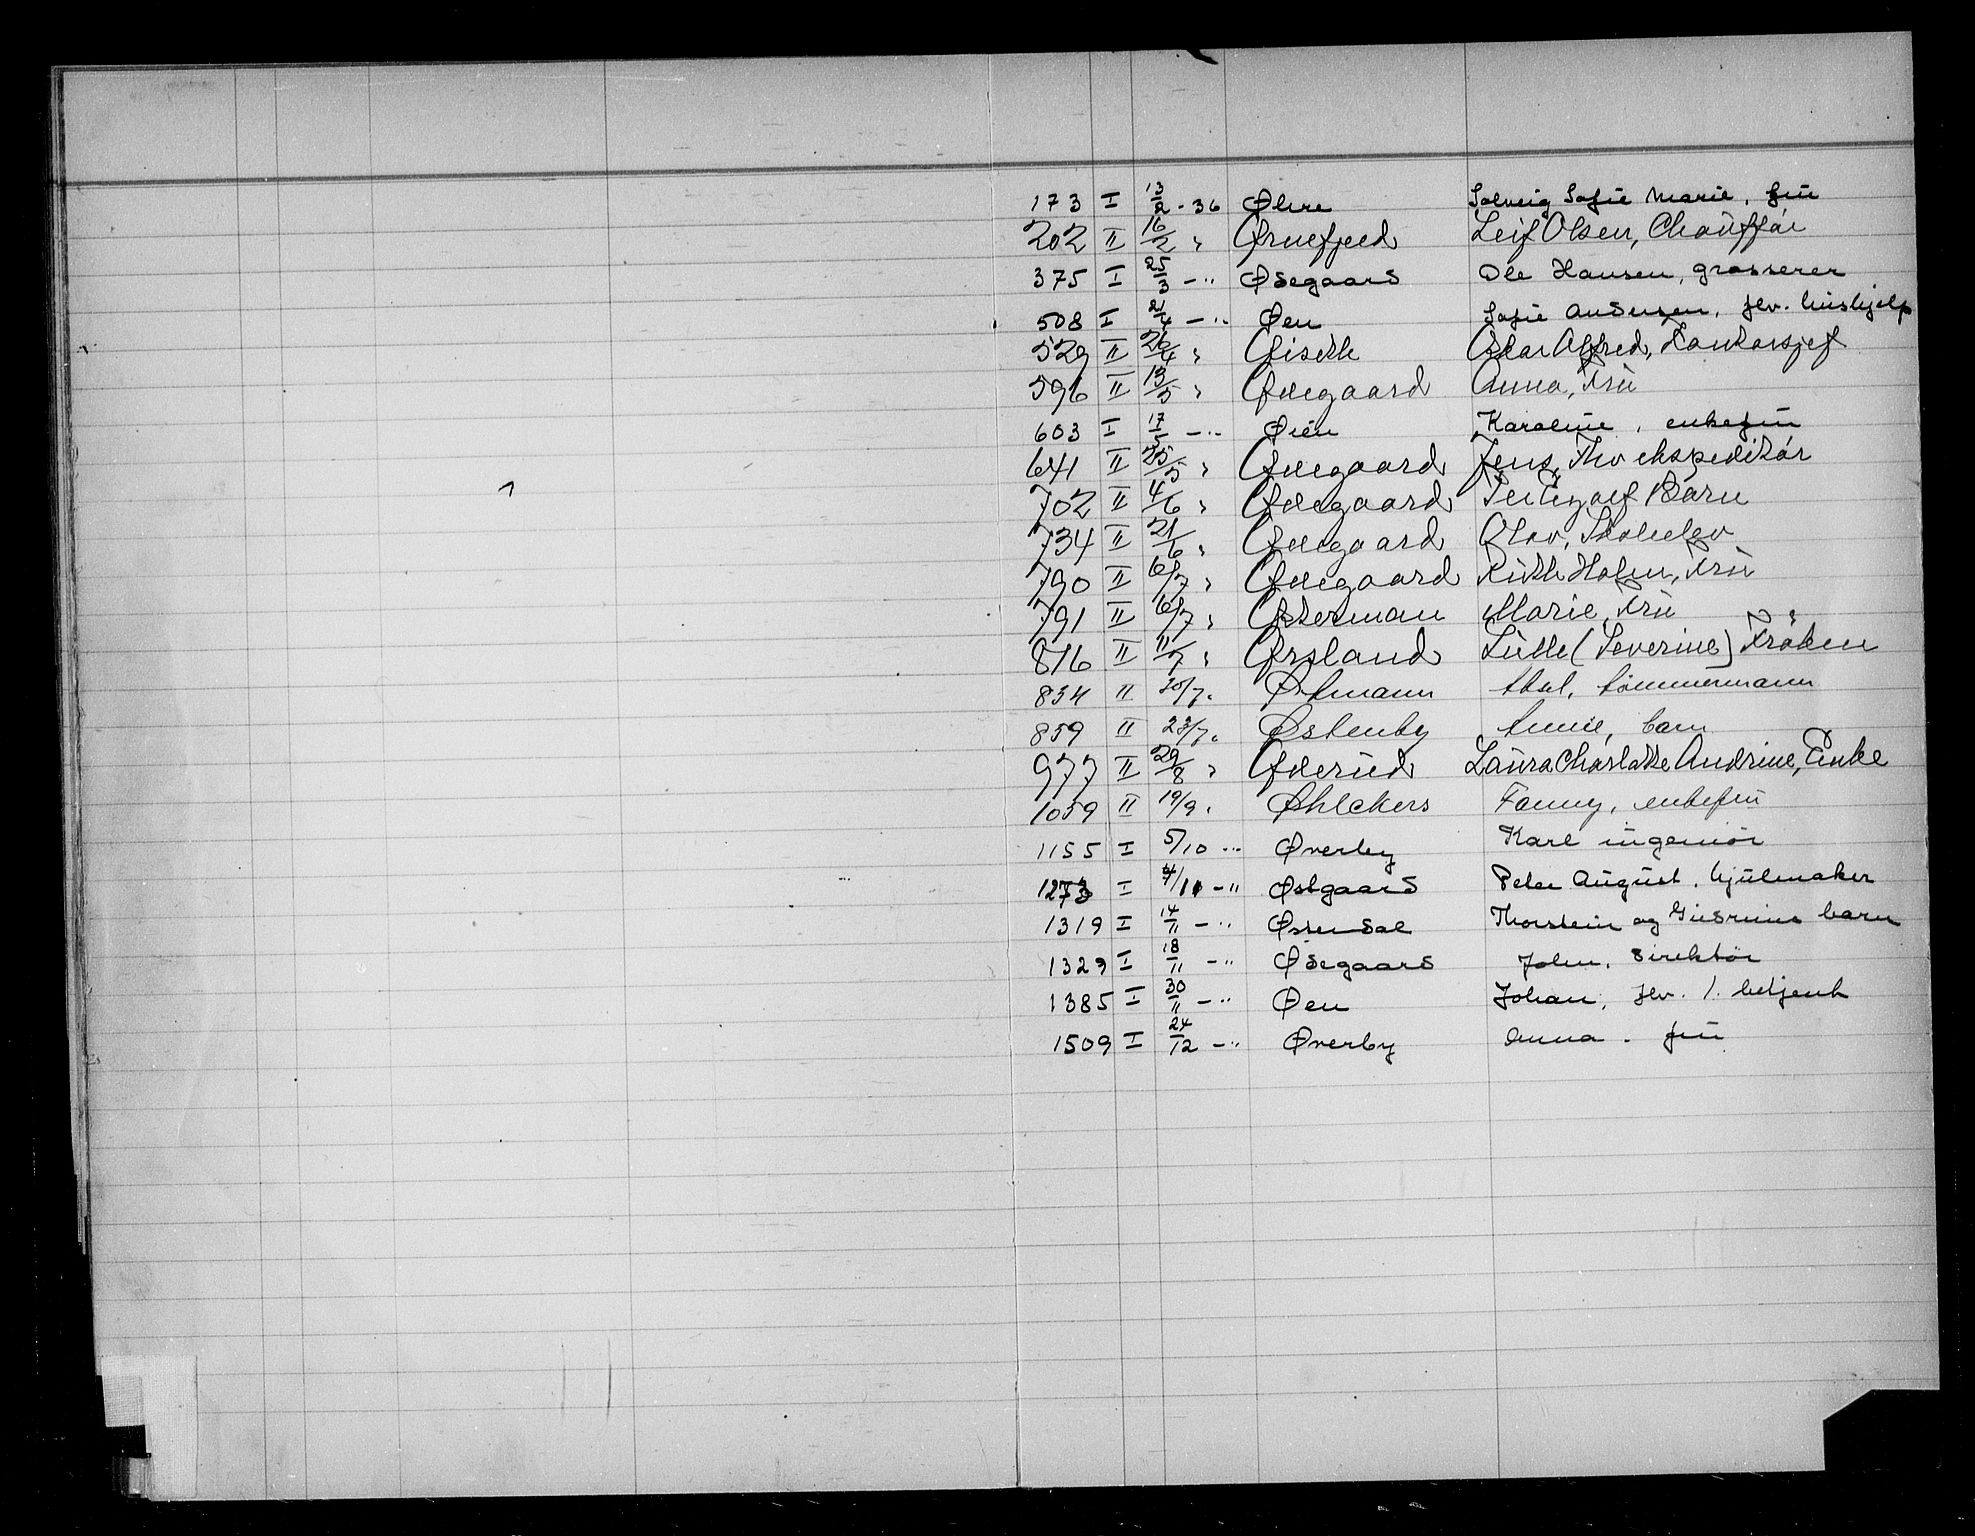 173 I 13/2 - 36 Øhre Solveig Sofie Marie, fru
202 II 16/2 " Ørnefjeld Leif Olsen, Chauffør
375 I 25/3 - " Ødegaard Ole Hansen, grosserer
508 I 2/4 - " Øen Sofie Andersen, fhv. hushjelp
529 II 26/4 " Oskar Alfred, Kontorsjef
596 II 13/5 " Ødegaard Anna, Fru
603 I 17/5 - " Øien Karoline, enkefru
641 II 25/5 " Ødegaard Jens, Fhv ekspeditør
702 II 4/6 " Ødegaard Barn
734 II 21/6 " Ødegaard Olav, Skoleelev
790 II 6/7 " Ødegaard Ruth Holm, Fru
791 II 6/7 " Østerman Marie, Fru
816 II 11/7 " Ørsland Lulle (Severine) Frøken
834 II 20/7 " Østmann Axel, tømmermann
859 II 23/7 " Østenby Annie, barn
977 II 29/8 " Øderud Laura Charlotte Andrine, Enke
1059 II 19/9 " Øhlckers Fanny, enkefru
1155 I 5/10 - " Øverby Karl ingeniør
1273 I 4/11 - " Østgaard Peter August, hjulmaker
1319 I 14/11 - " Østendal Thorstein og Gudruns barn
1329 I 18/11 - " Ødegaard John, direktør
1385 I 30/11 - " Øen Johan, fhv. l. betjent
1509 I 24/12 - " Øverby Anna. fru